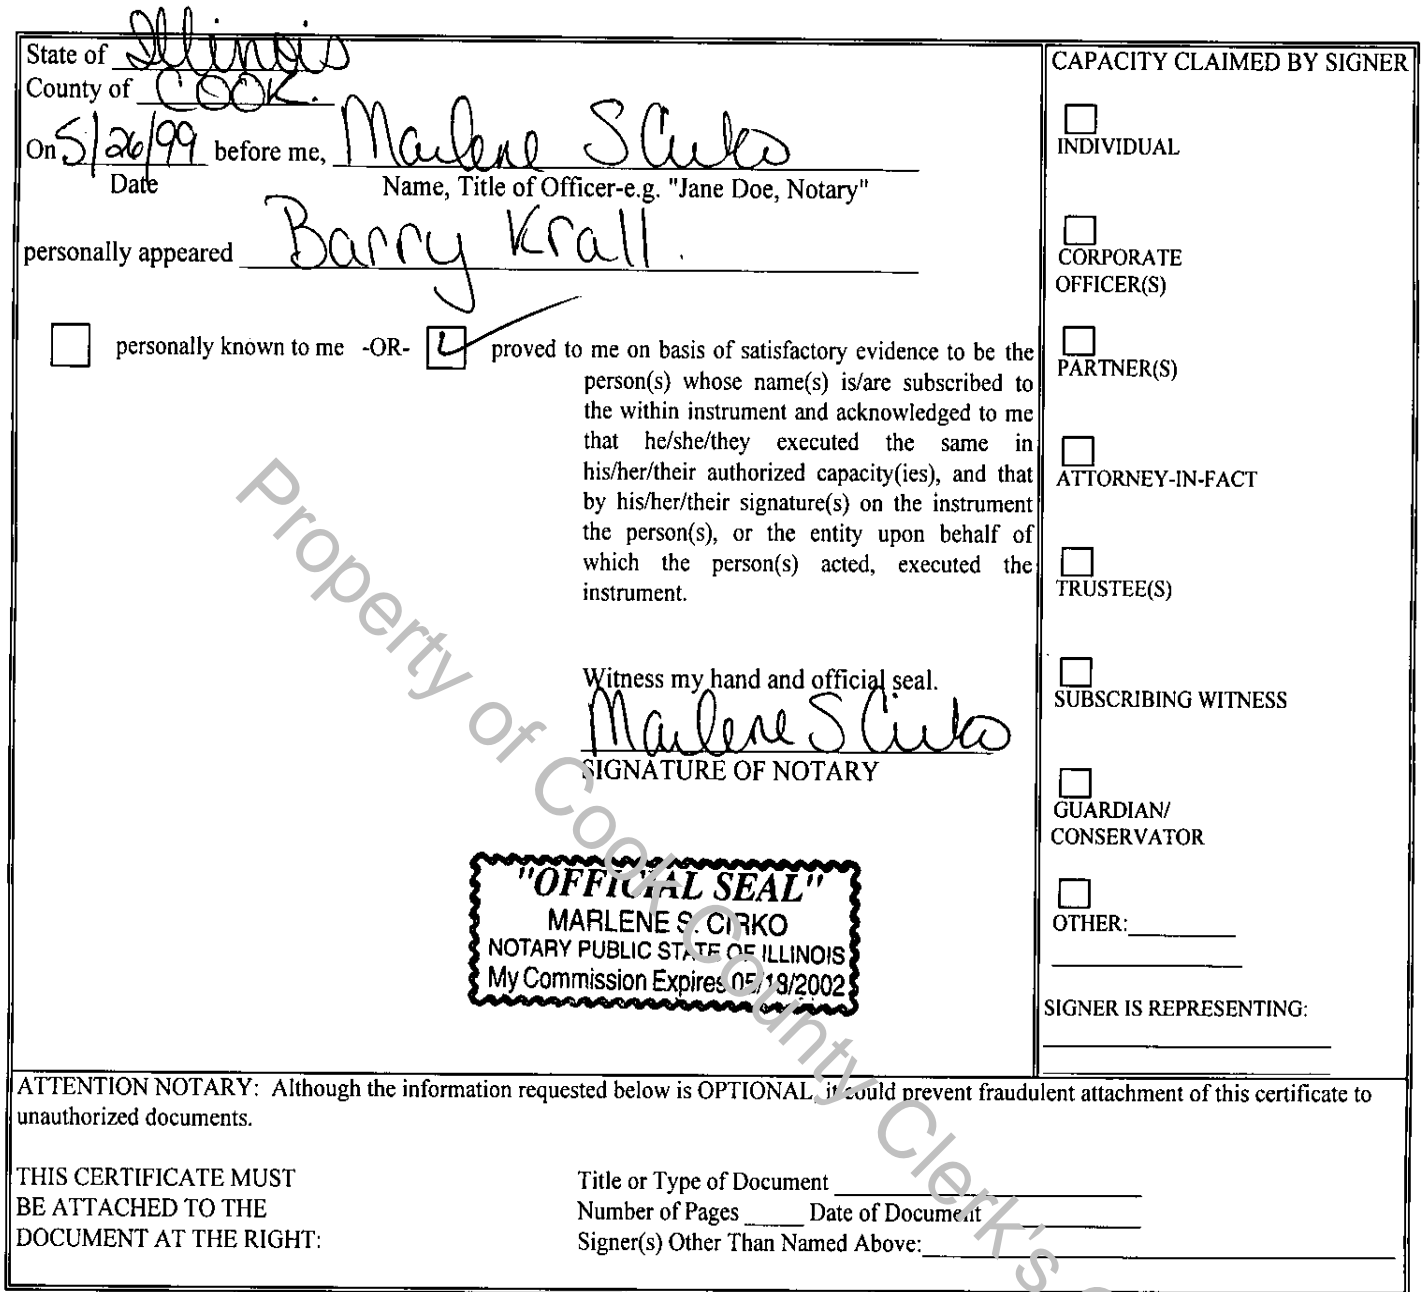 State of Illinois
County of COOK.
On 5/26/99 before me, Marlene S Cirko
Date Name, Title of Officer-e.g. "Jane Doe, Notary"
personally appeared Barry Krall.
personally known to me -OR- proved to me on basis of satisfactory evidence to be the
person(s) whose name(s) is/are subscribed to
the within instrument and acknowledged to me
that he/she/they executed the same in
his/her/their authorized capacity(ies), and that
by his/her/their signature(s) on the instrument
the person(s), or the entity upon behalf of
which the person(s) acted, executed the
instrument.
Witness my hand and official seal.
Marlene S Cirko
SIGNATURE OF NOTARY
"OFFICIAL SEAL"
MARLENE S. CIRKO
NOTARY PUBLIC STATE OF ILLINOIS
My Commission Expires 05/18/2002
CAPACITY CLAIMED BY SIGNER
INDIVIDUAL
CORPORATE
OFFICER(S)
PARTNER(S)
ATTORNEY-IN-FACT
TRUSTEE(S)
SUBSCRIBING WITNESS
GUARDIAN/
CONSERVATOR
OTHER:
SIGNER IS REPRESENTING:
ATTENTION NOTARY: Although the information requested below is OPTIONAL, it could prevent fraudulent attachment of this certificate to
unauthorized documents.
THIS CERTIFICATE MUST
BE ATTACHED TO THE
DOCUMENT AT THE RIGHT:
Title or Type of Document
Number of Pages Date of Document
Signer(s) Other Than Named Above:
Property of Cook County Clerk's